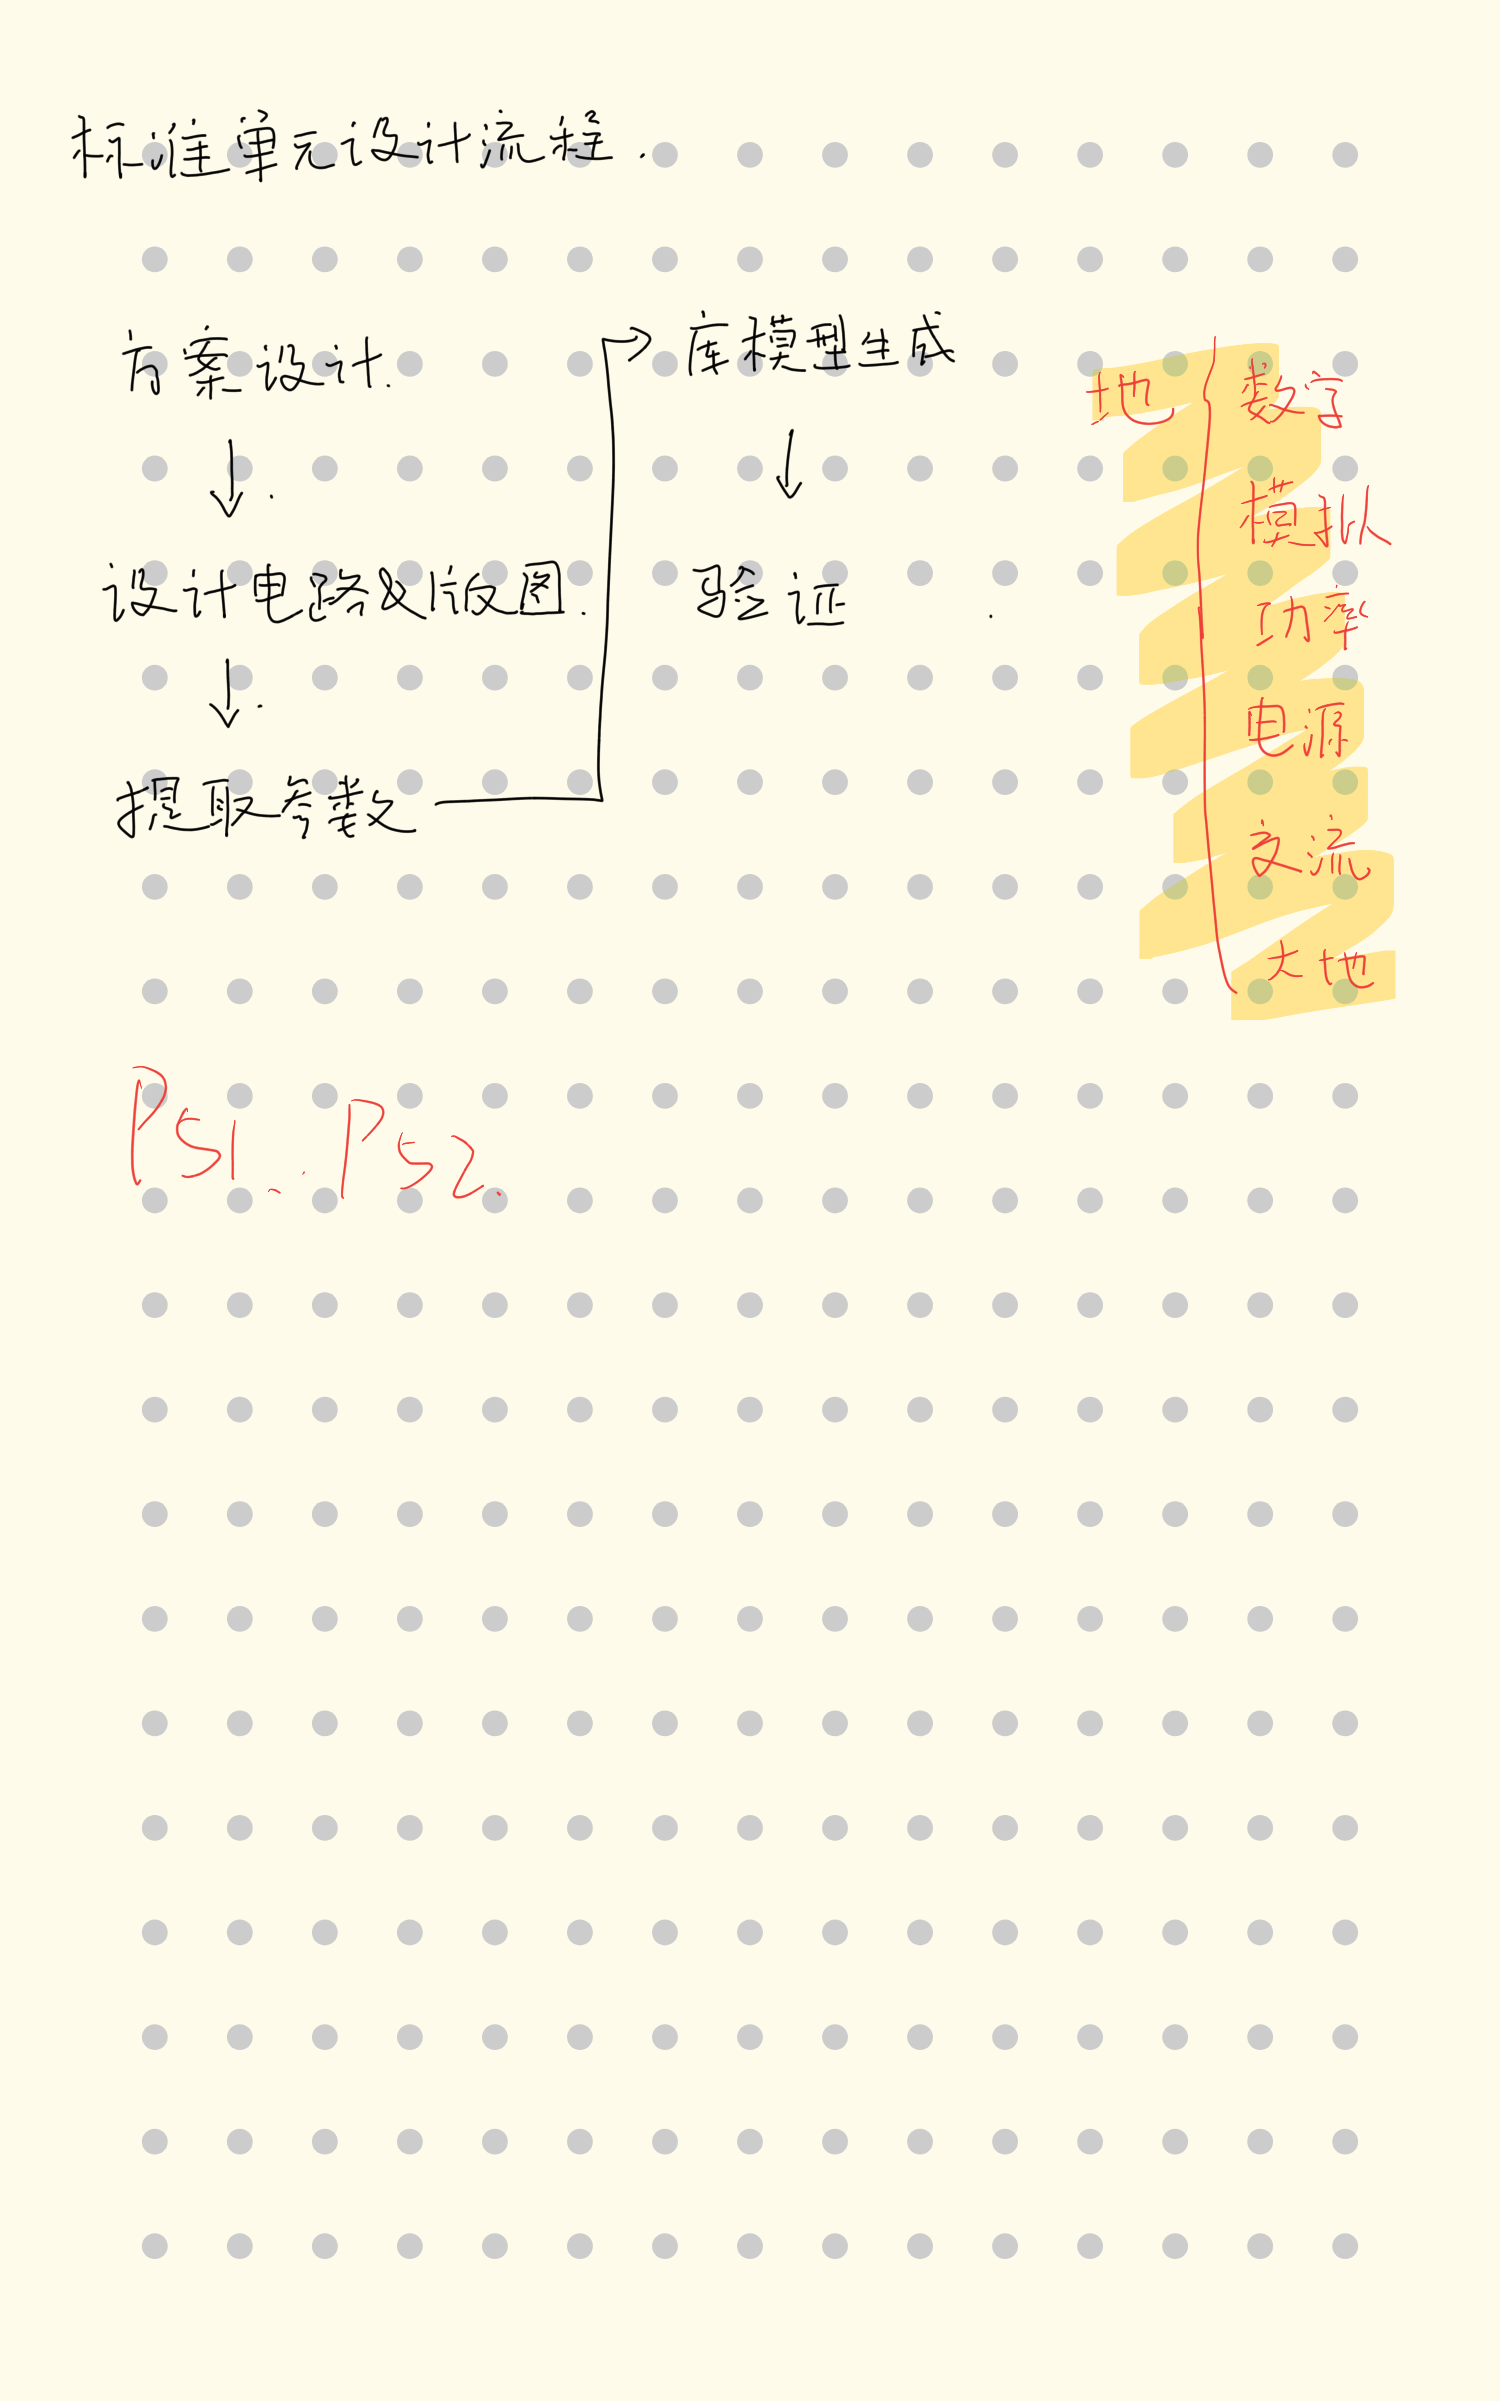 标准单元设计流程.
方案设计.
↓
设计电路&版图.
↓
提取参数
→ 库模型生成
↓
验证
地 { 数字
模拟
功率
电源
交流
大地
P51、P52.